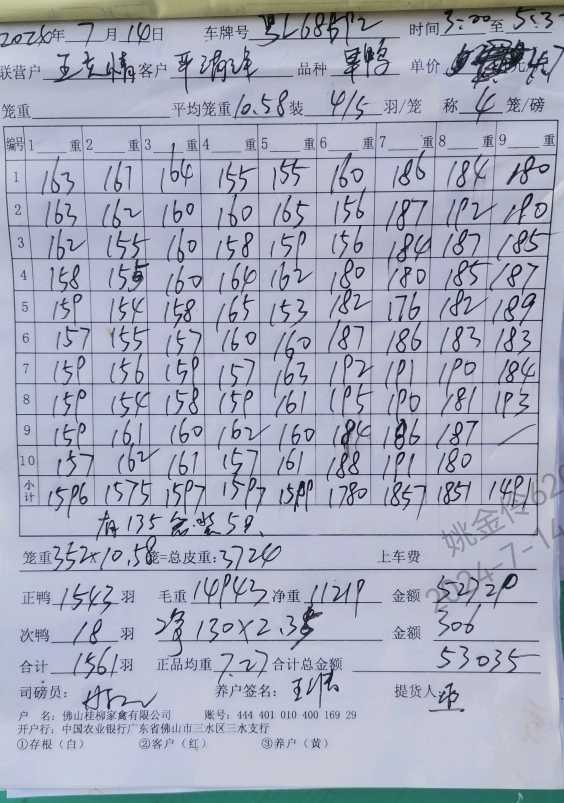 2024年 7 月 14 日 车牌号 时间 3:00 至 5:3
联营户 客户 品种 单价
笼重 平均笼重 10.58 装 4/5 羽/笼 称 4 笼/磅
编号 1 重 2 重 3 重 4 重 5 重 6 重 7 重 8 重 9 重
1 163 167 164 155 155 160 186 184 180
2 163 162 160 160 165 156 187 192 190
3 162 155 160 158 159 156 184 187 185
4 158 155 160 164 162 180 180 185 187
5 159 154 158 165 153 182 176 182 189
6 157 155 157 160 160 187 186 183 183
7 159 156 159 157 163 192 191 190 184
8 159 154 158 159 161 195 190 181 193
9 159 161 160 162 160 184 186 187 /
10 157 162 161 157 161 188 191 180
小计 1596 1575 1597 1597 1599 1780 1857 1851 1491
有135 装5只
笼重 352×10.58 笼=总皮重: 3724 上车费
正鸭 1543 羽 毛重 14943 净重 11219 金额
次鸭 18 羽 130×2.35 金额 306
合计 1561 羽 正品均重 7.27 合计总金额 53035
司磅员: 养户签名: 提货人:
户 名: 佛山桂柳家禽有限公司 账号: 444 401 010 400 169 29
开户行: 中国农业银行广东省佛山市三水区三水支行
①存根（白） ②客户（红） ③养户（黄）
姚金伶620
2024-7-14